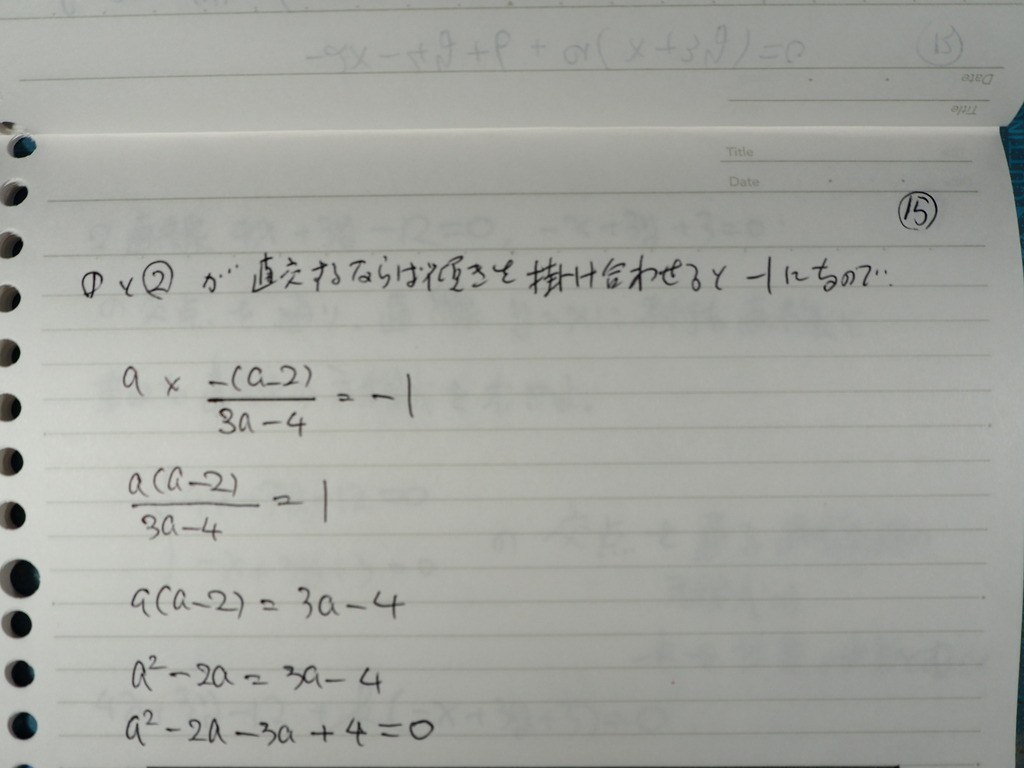 Title
Date
⑮
①と②が直交するならば傾きを掛け合わせると -1になるので‥
a × -(a-2)/3a-4 = -1
a(a-2)/3a-4 = 1
a(a-2) = 3a-4
a²-2a = 3a-4
a²-2a-3a+4=0